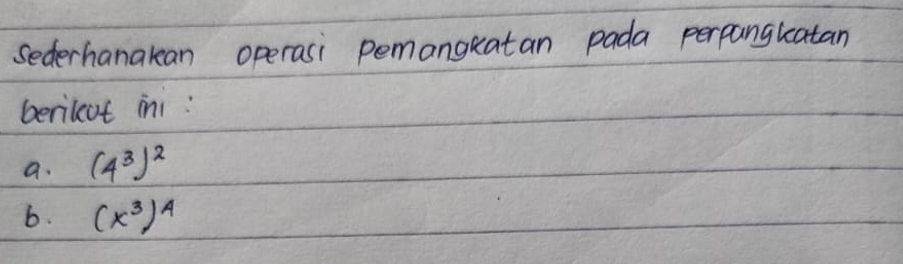 Sederhanakan operasi pemangkatan pada perpangkatan
berikut ini :
a. (4³)²
b. (x³)⁴